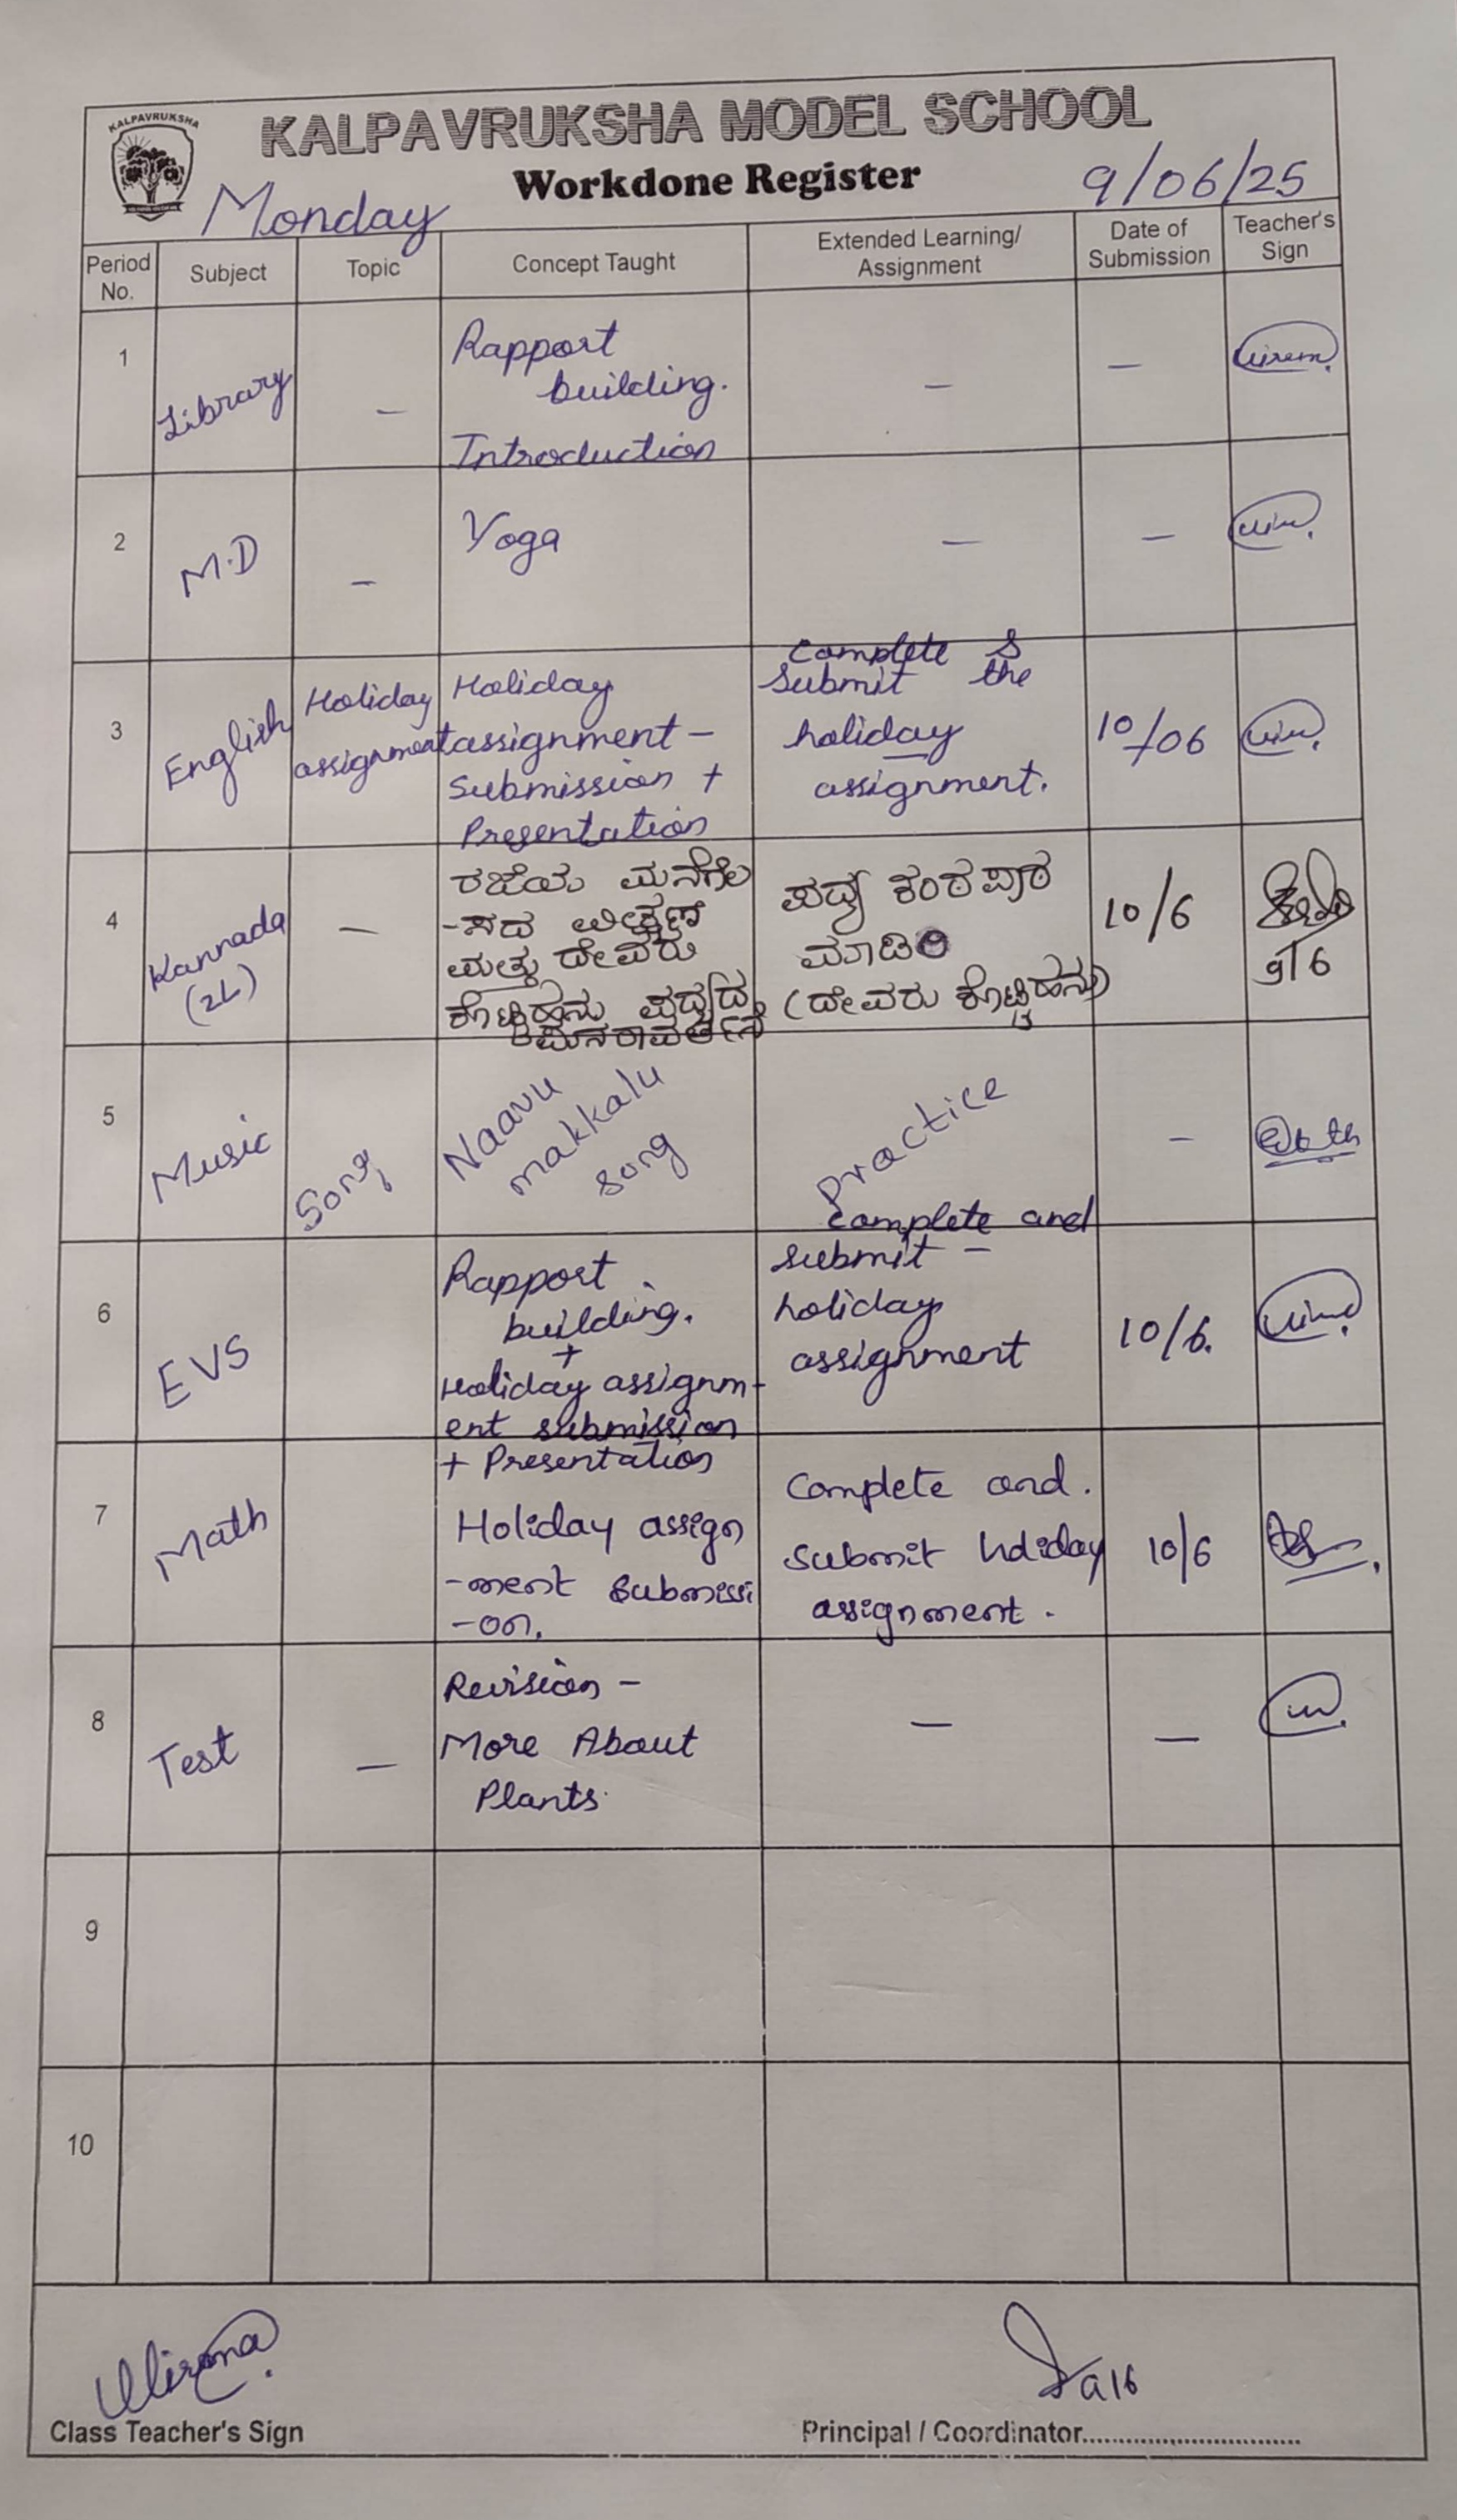 KALPAVRUKSHA
KALPAVRUKSHA MODEL SCHOOL
Workdone Register
Monday
9/06/25
Period No.
Subject
Topic
Concept Taught
Extended Learning/
Assignment
Date of
Submission
Teacher's
Sign
1
Library
–
Rapport
building.
Introduction
–
–
2
M.D
–
Yoga
–
–
3
English
Holiday
assignment
Holiday
assignment –
Submission +
Presentation
Complete &
Submit the
holiday
assignment.
10/06
4
Kannada
(2L)
–
ರಜೆಯ ಮನೆಗೆಲ
-ಸದ ವೀಕ್ಷಣೆ
ಮತ್ತು ದೇವರು
ಕೊಟ್ಟಿಹನು ಪದ್ಯದ
ಪುನರಾವರ್ತನೆ
ಪದ್ಯ ಕಂಠಪಾಠ
ಮಾಡಿರಿ
(ದೇವರು ಕೊಟ್ಟಿಹನು)
10/6
9/6
5
Music
Song
Naavu
makkalu
song
practice
–
6
EVS
Rapport
building.
+
Holiday assignm-
ent submission
+ Presentation
Complete and
submit –
holiday
assignment
10/6.
7
Math
Holiday assign
-ment Submissi
-on.
Complete and.
submit holiday
assignment.
10/6
8
Test
–
Revision –
More About
Plants.
–
–
9
10
Class Teacher's Sign
Principal / Coordinator..............................